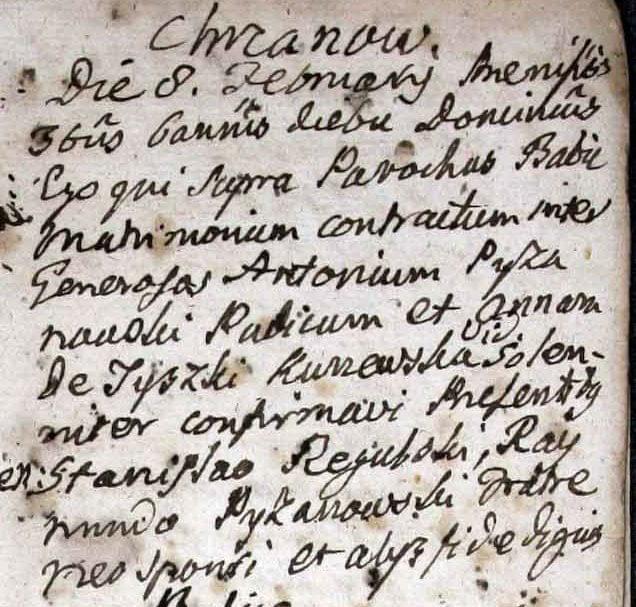 Chrzanow.
Die 8. February premissis
3bus bannis diebu Dominicus
Ego qui supra Parochus Babic
Matrimonium contractum inter
Generosos Antonium Pyza
nowski et Annam
De Tyszki Kurzewska Vid Solen-
niter confirmavi Presentib
Stanislao Regulski, Ray
mundo Pyzanowski Fratre
neo sponsi et alys fide dignis